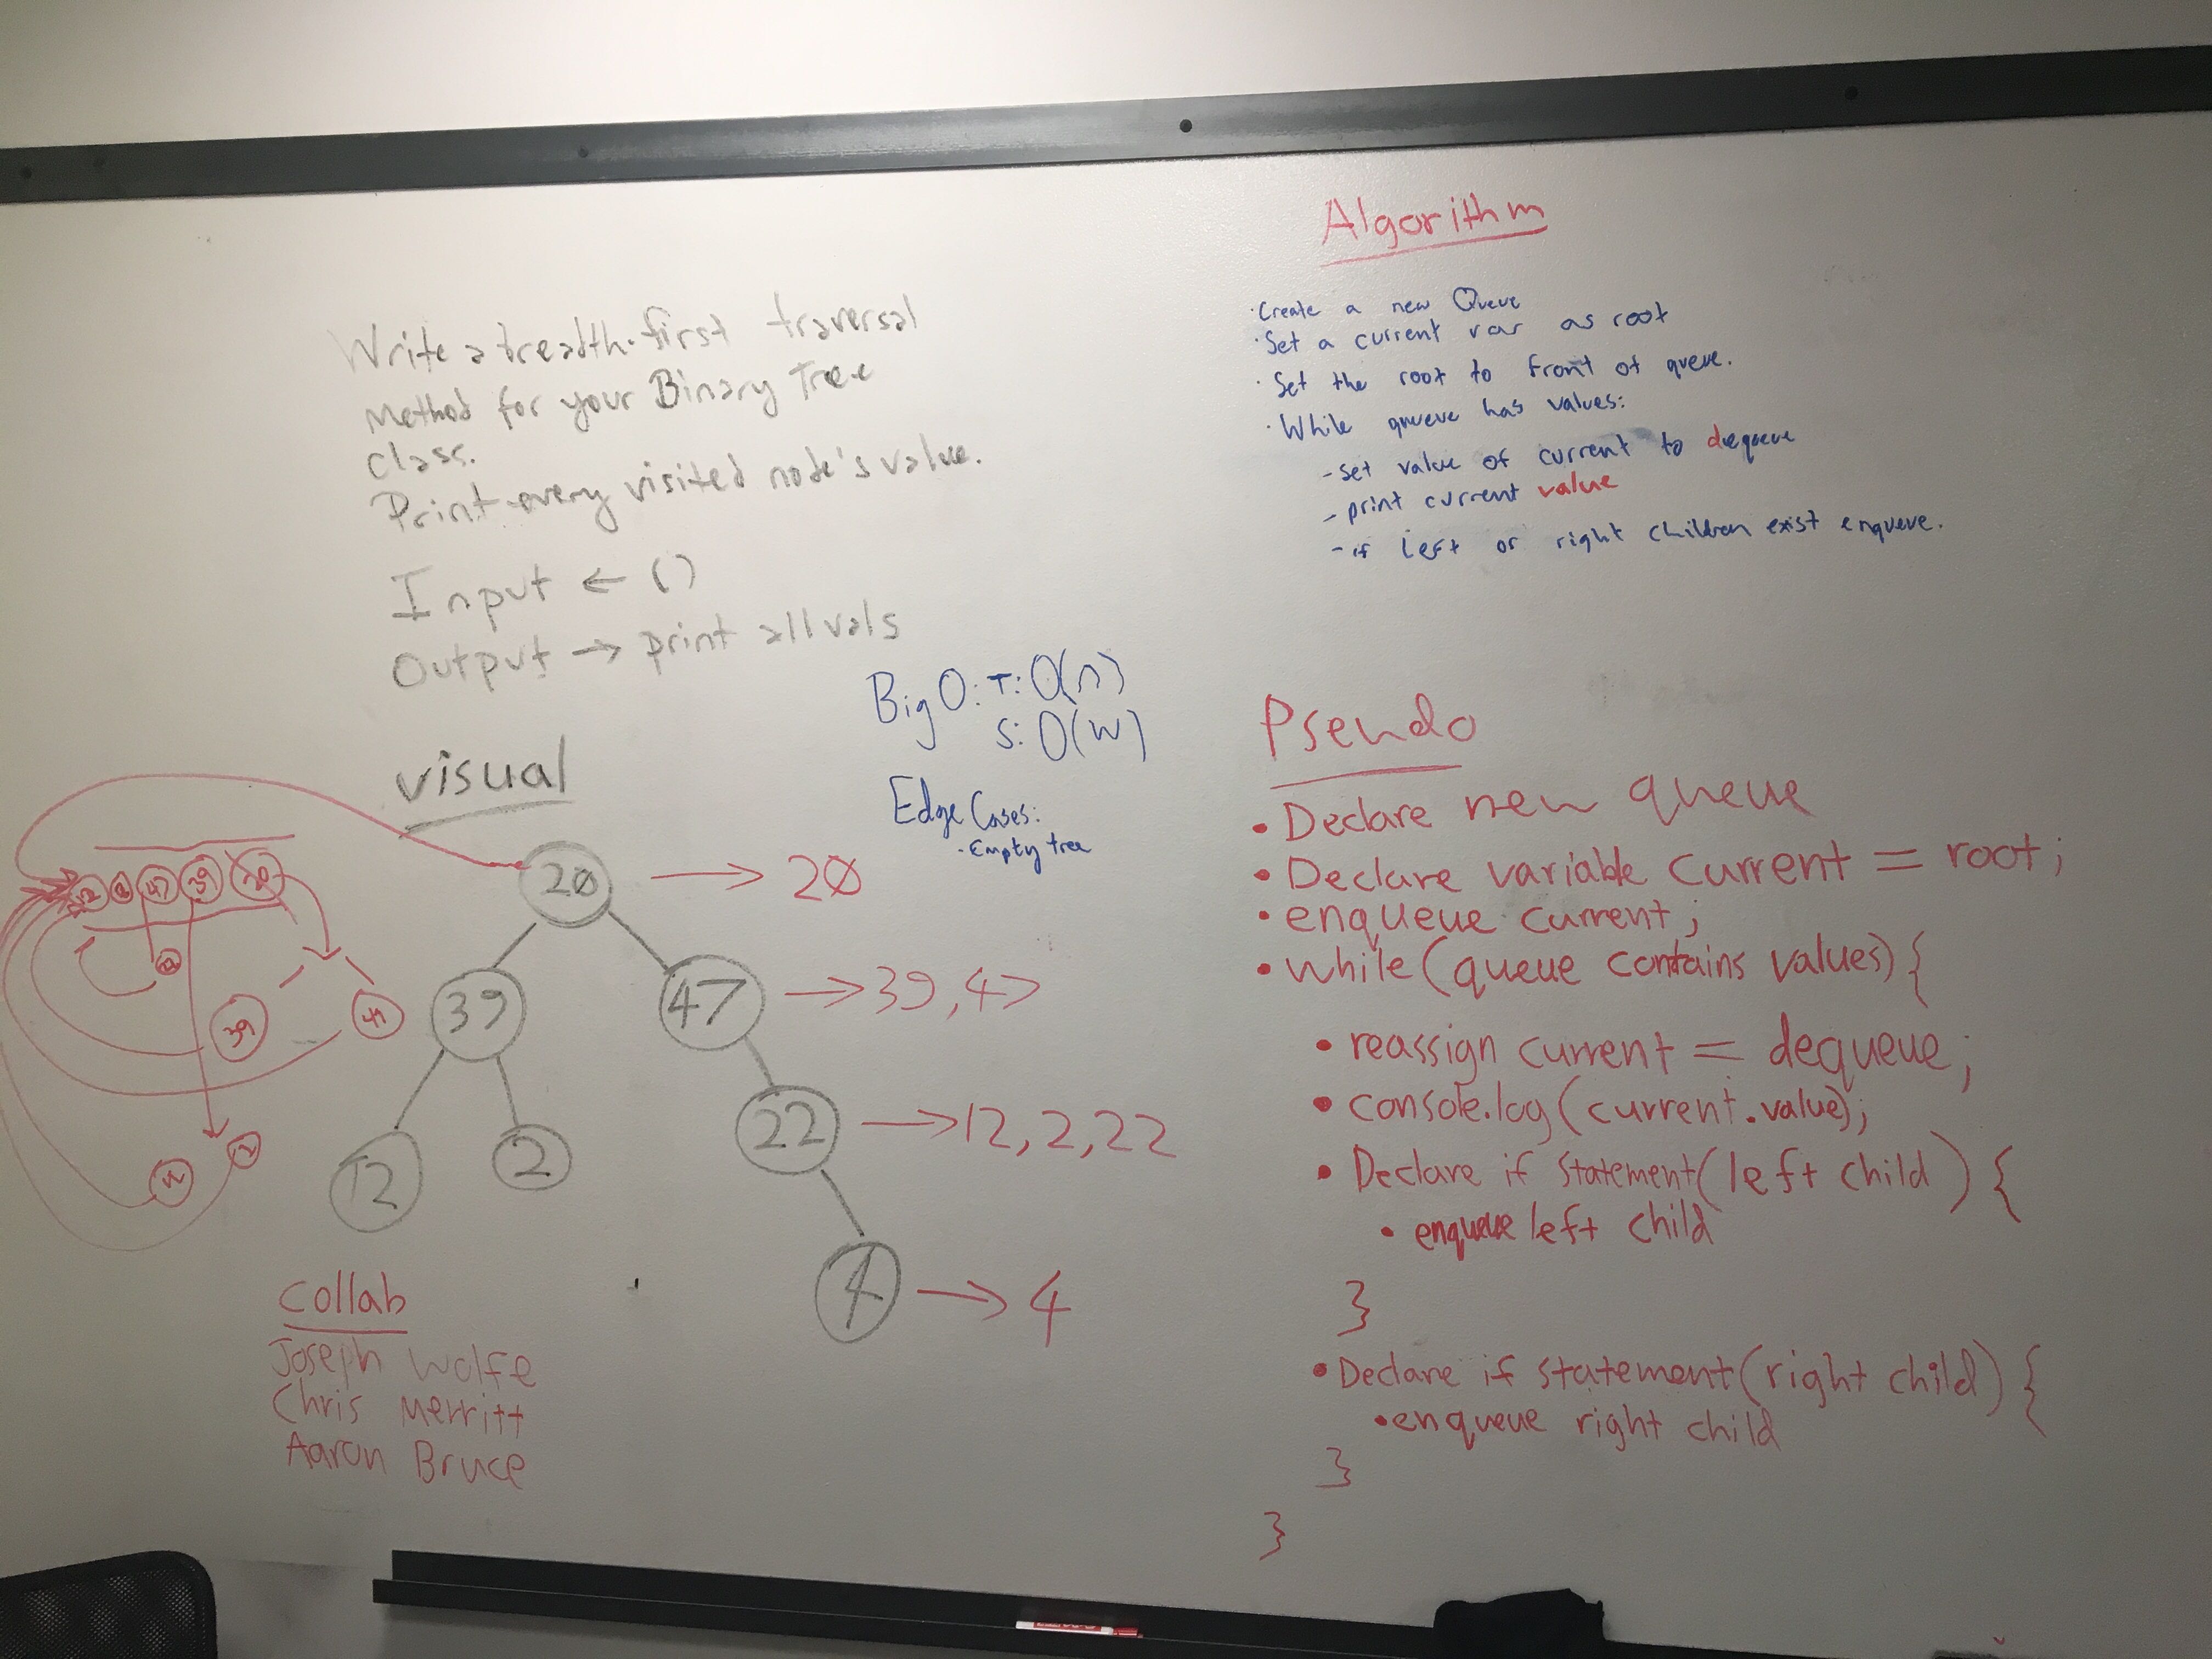 Write a breadth-first traversal
Method for your Binary Tree
class.
Print every visited node's value.
Input ← ()
Output → print all vals
Big O: T: O(n)
S: O(w)
Edge Cases:
· Empty tree
visual
20 → 20
39 47 → 39, 47
12 2 22 → 12, 2, 22
4 → 4
47 39 20
39
Collab
Joseph Wolfe
Chris Merritt
Aaron Bruce
Algorithm
· Create a new Queue
· Set a current var as root
· Set the root to front of queue.
· While queue has values:
- set value of current to dequeue
- print current value
- if left or right children exist enqueue.
Pseudo
• Declare new queue
• Declare variable current = root;
• enqueue current;
• while (queue contains values) {
• reassign current = dequeue;
• console.log(current.value);
• Declare if statement (left child) {
• enqueue left child
}
• Declare if statement (right child) {
• enqueue right child
}
}